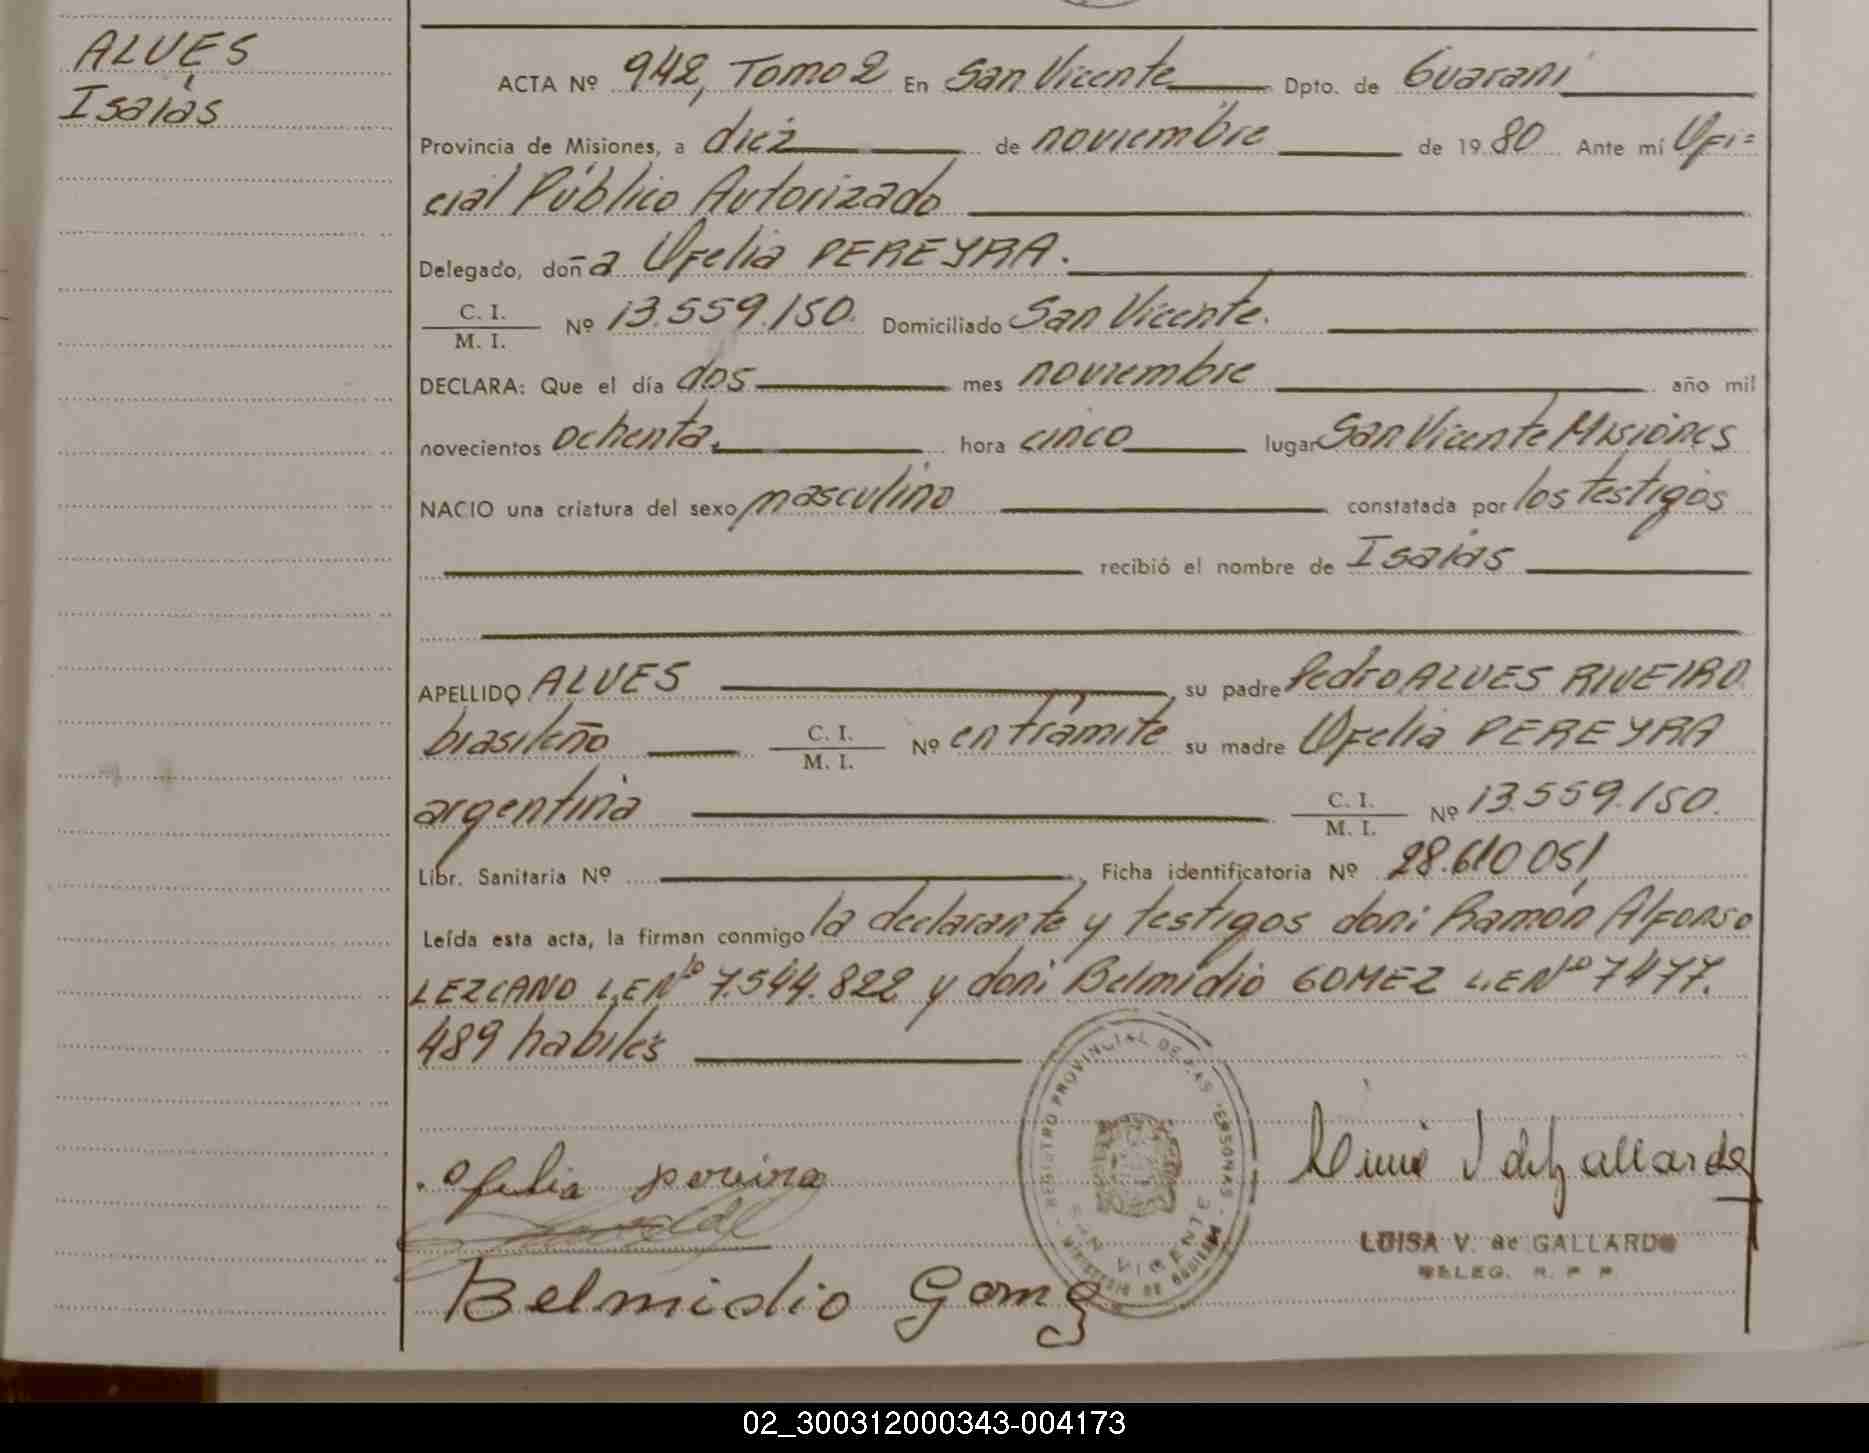 ALVES
Isaías
ACTA Nº 942, Tomo 2 En San Vicente Dpto. de Guaraní
Provincia de Misiones, a diez de noviembre de 1980 Ante mí Ofi=
cial Público Autorizado
Delegado, doña Ofelia PEREYRA.
C. I.
M. I. Nº 13.559.150. Domiciliado San Vicente.
DECLARA: Que el día dos mes noviembre año mil
novecientos ochenta. hora cinco lugar San Vicente Misiones
NACIO una criatura del sexo masculino constatada por los testigos
recibió el nombre de Isaías
APELLIDO ALVES, su padre Pedro ALVES RIVEIRO.
brasileño C. I.
M. I. Nº en trámite su madre Ofelia PEREYRA
argentina C. I.
M. I. Nº 13.559.150.
Libr. Sanitaria Nº , Ficha identificatoria Nº 28.610 051
Leída esta acta, la firman conmigo la declarante y testigos don: Ramón Alfonso
LEZCANO L.E Nº 7.544.822 y don: Belmidio GOMEZ L.E Nº 7477.
489 habiles
Ofelia pereira
Belmidio Gomez
REGISTRO PROVINCIAL DE LAS PERSONAS
SAN VICENTE
LUISA V. de GALLARDO
DELEG. R. P. P.
02_300312000343-004173